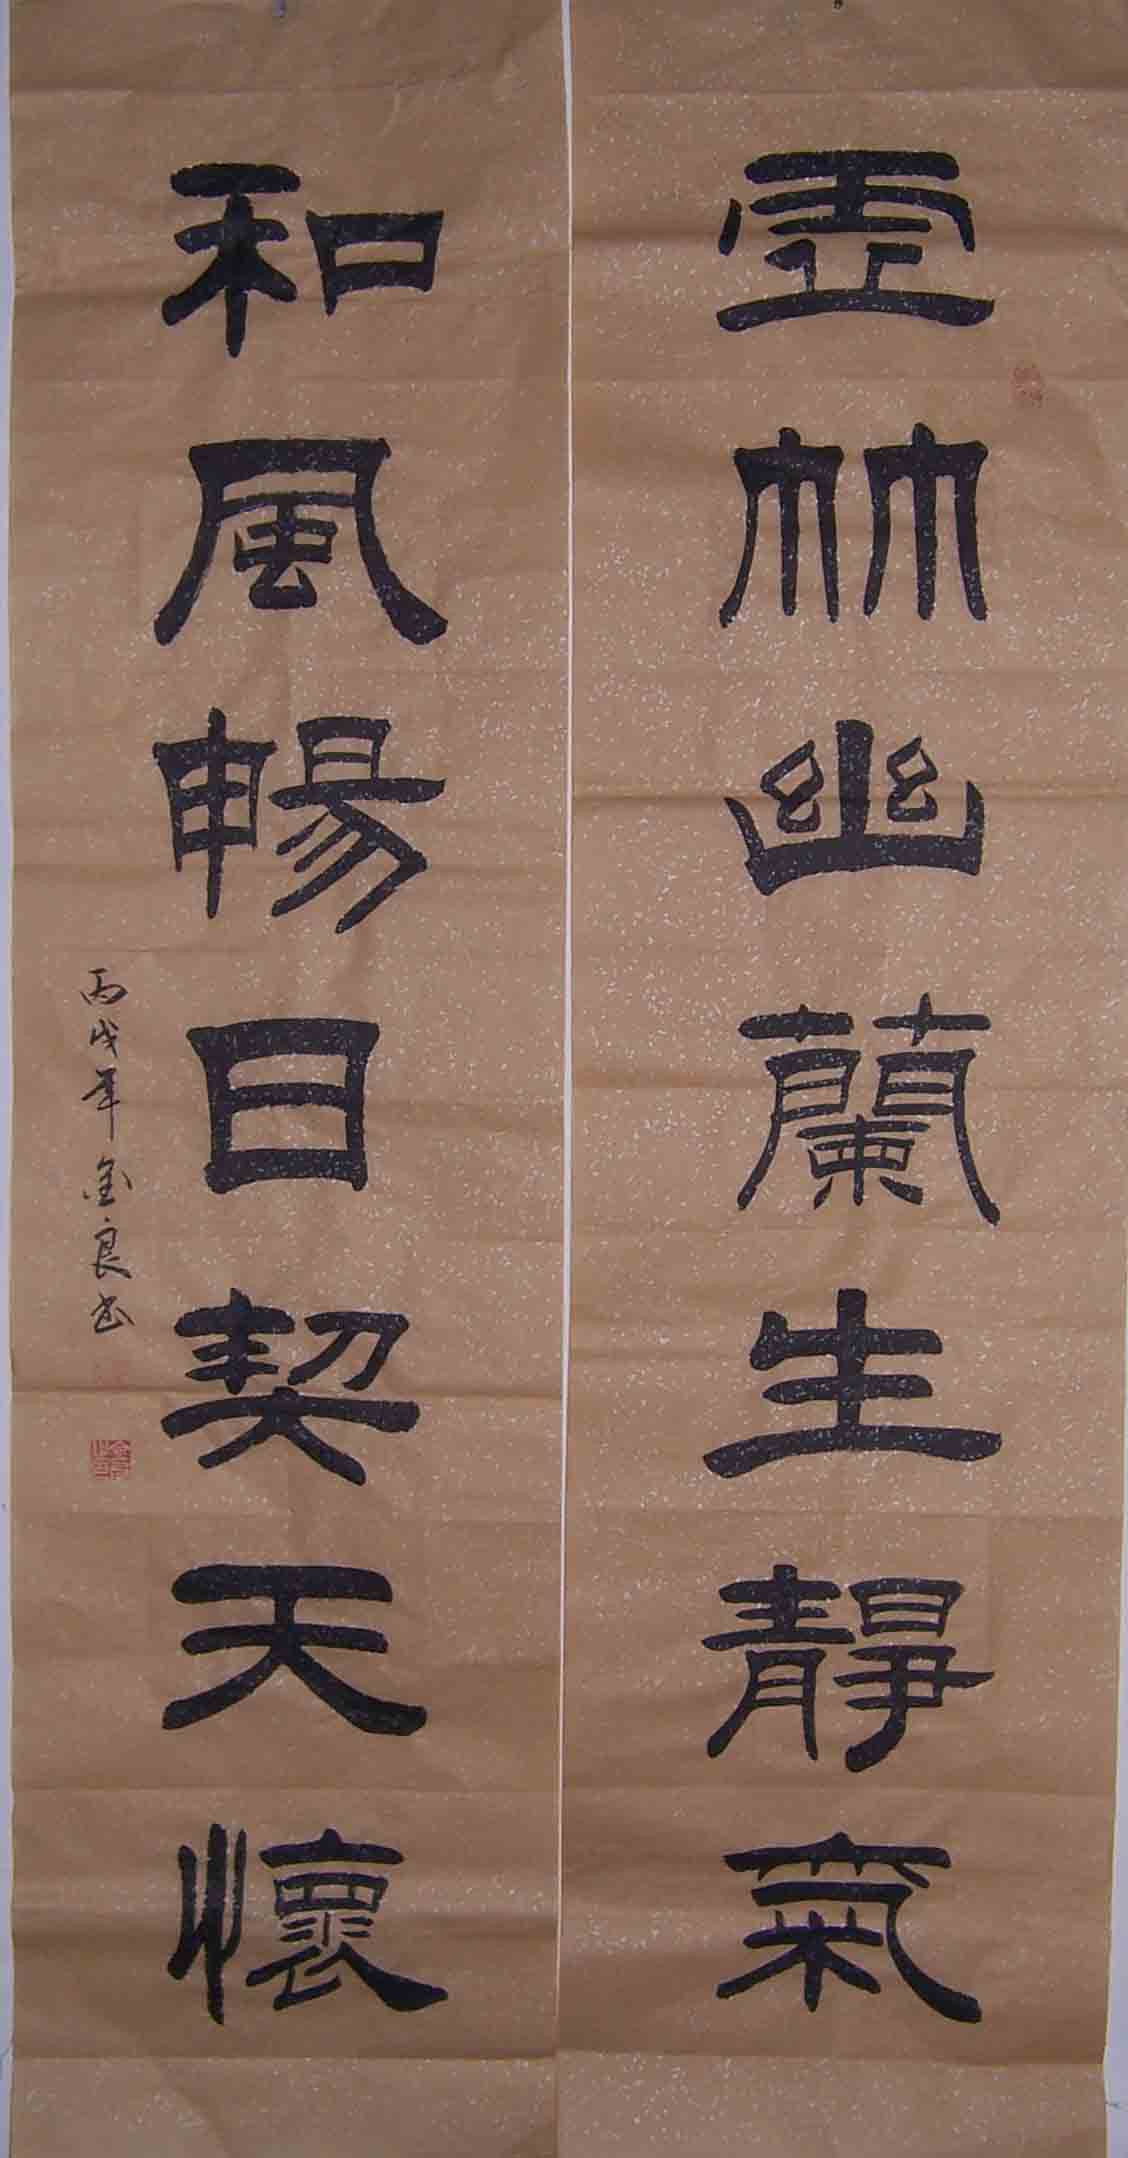 虛竹幽蘭生靜氣
和風暢日契天懷
丙戌年金良书